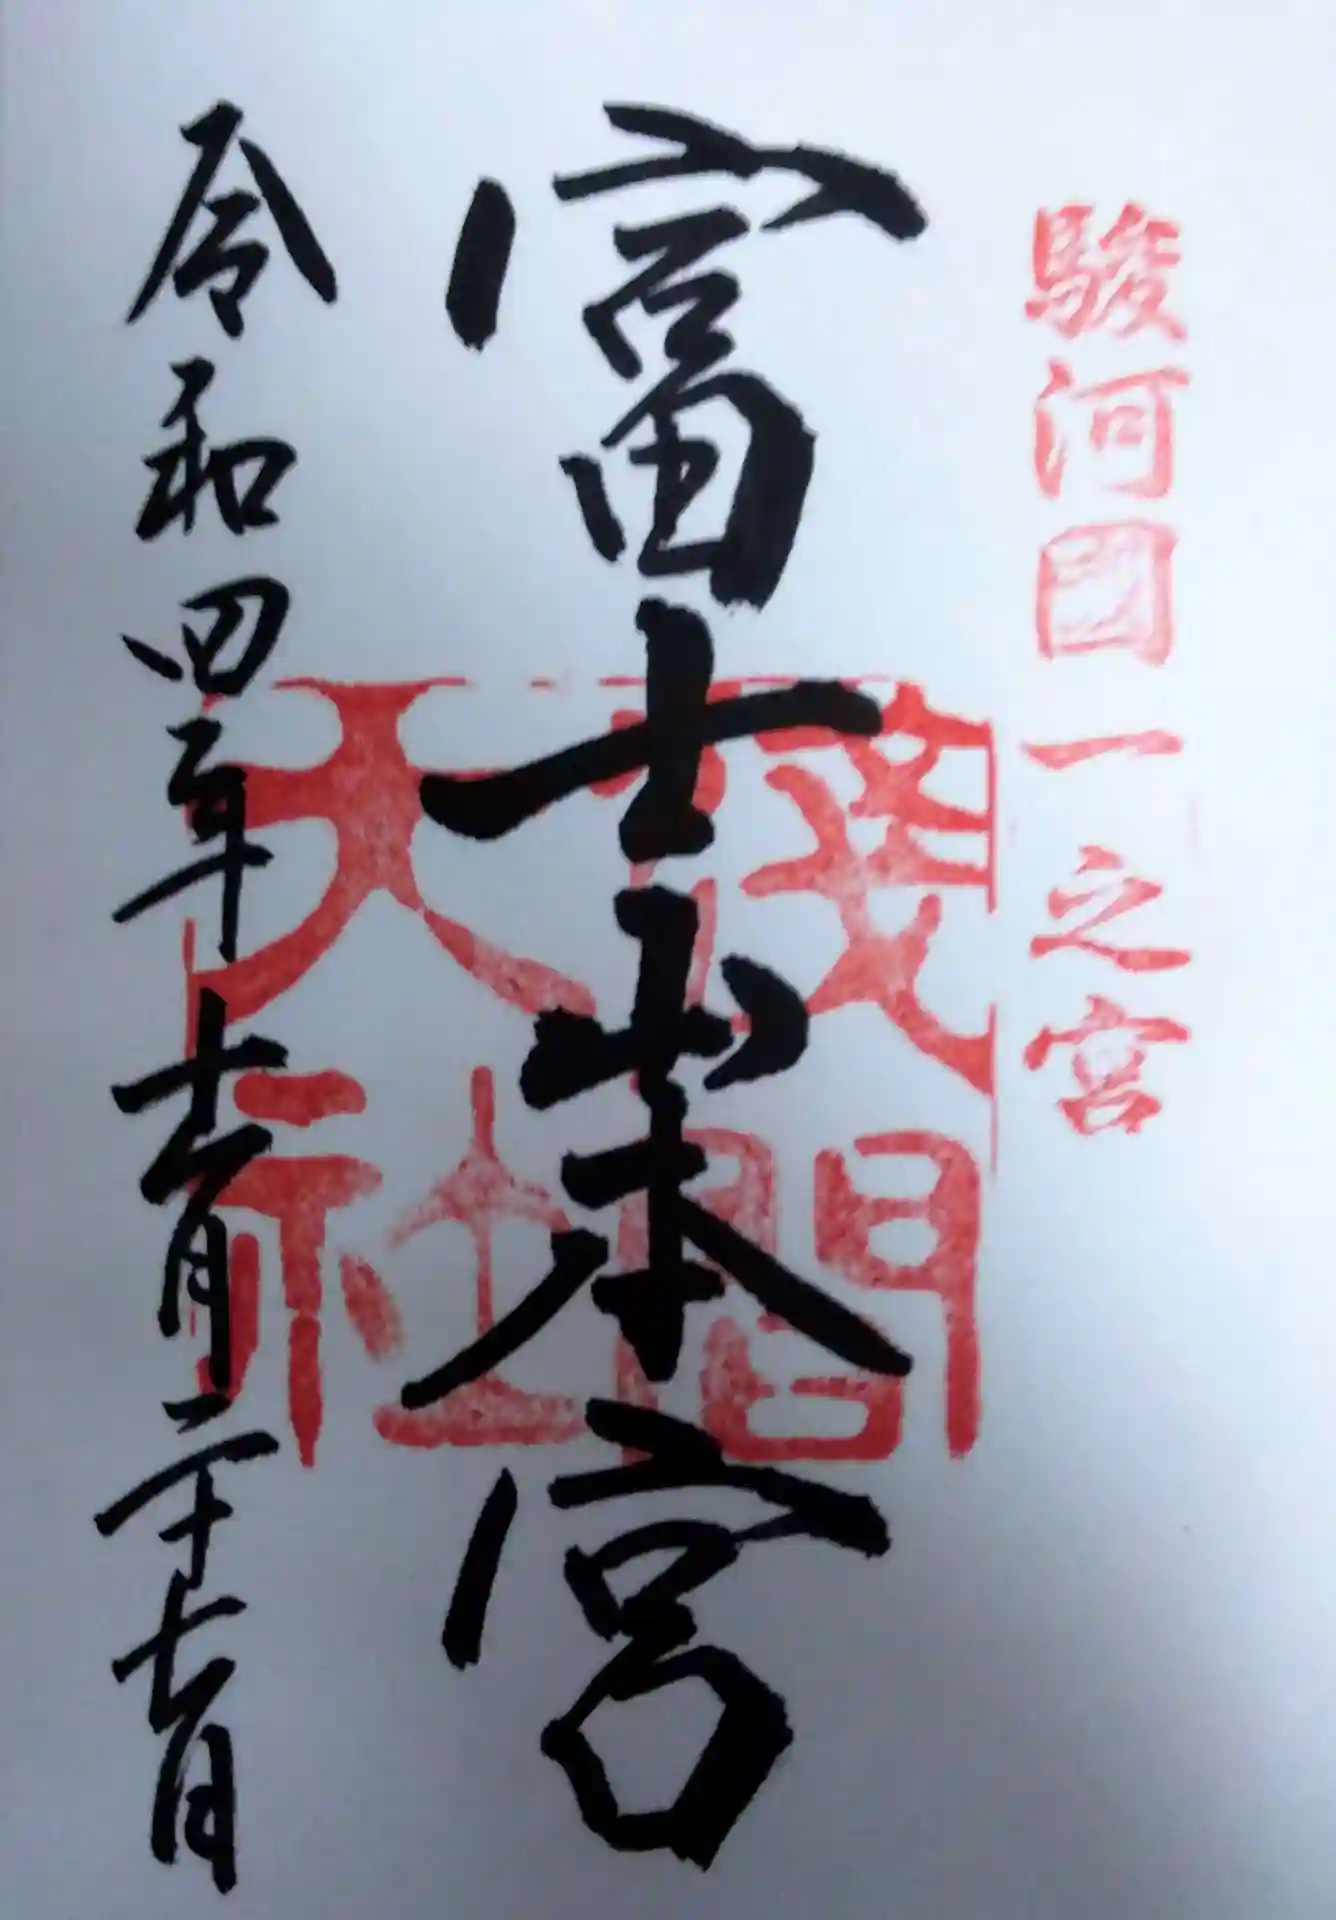 駿河國一之宮
富士山本宮
淺間大社
令和四年十一月二十七日